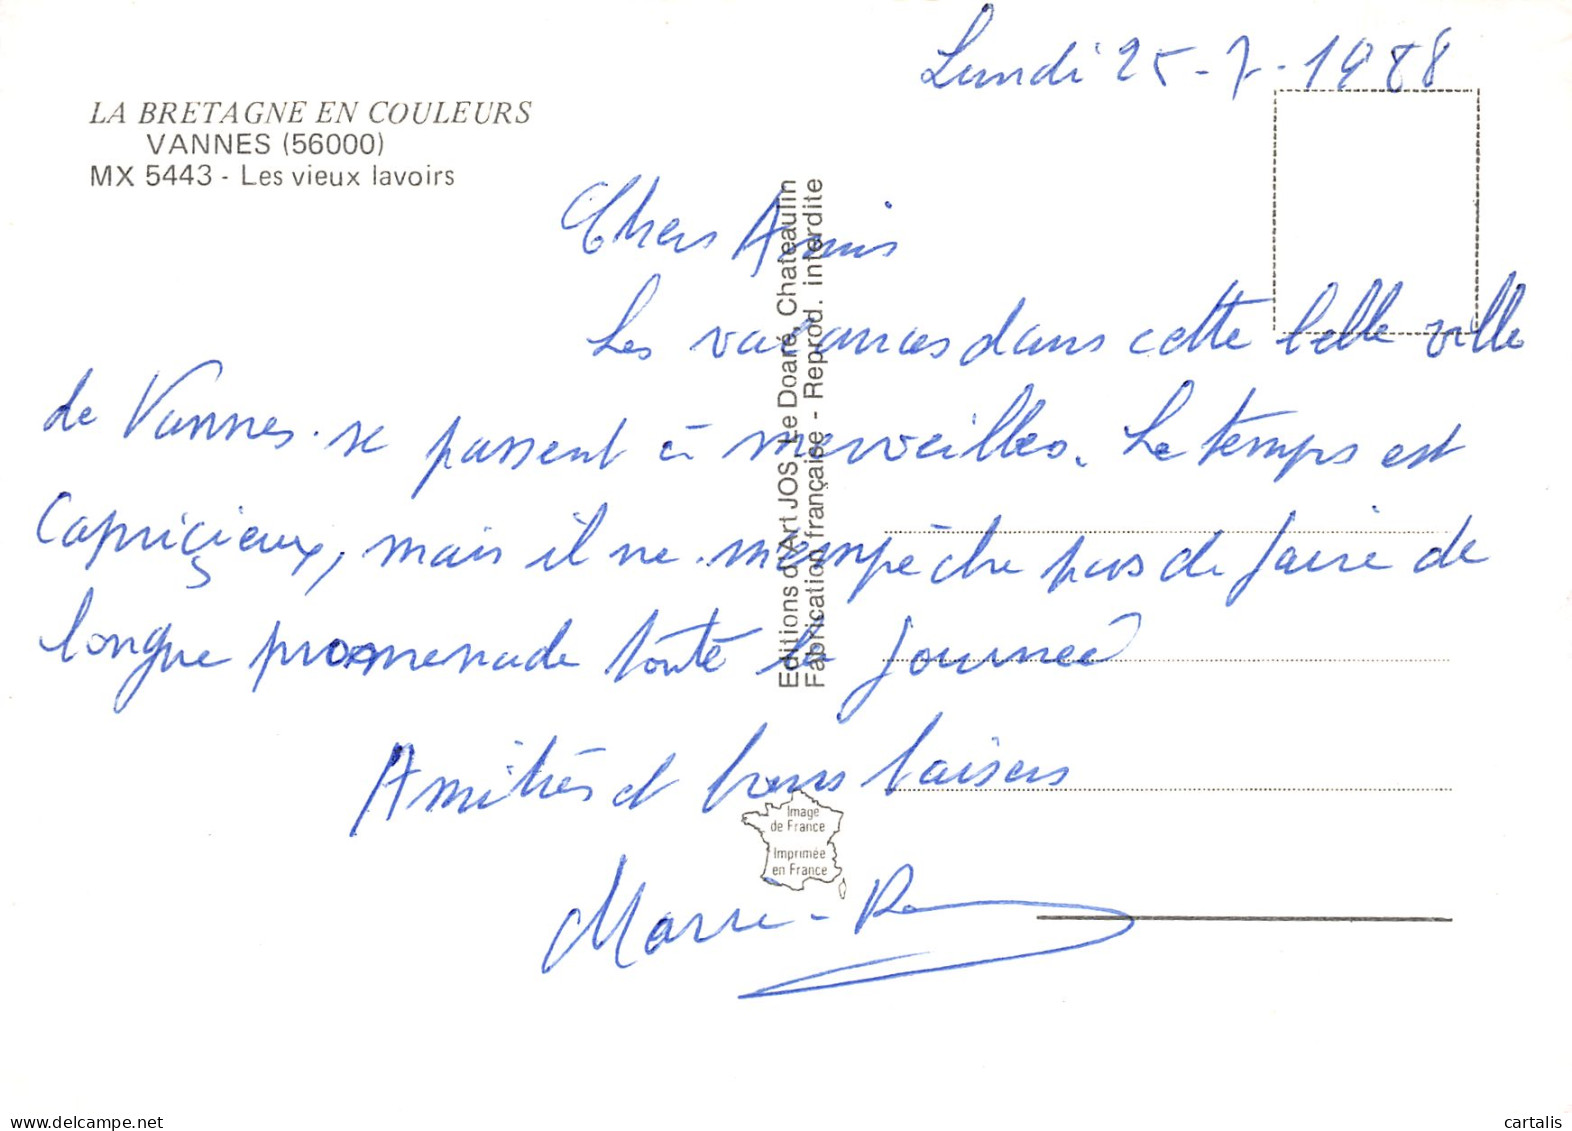 Lundi 25-7-1988
LA BRETAGNE EN COULEURS
VANNES (56000)
MX 5443 - Les vieux lavoirs
Chers Amis
Les vacances dans cette belle ville
de Vannes. se passent à merveilles. Le temps est
Capriçieux, mais il ne m'empèche pas de faire de
longue promenade toute la journeé
Amitiés et bons baisers
Editions d'Art JOS, Le Doaré, Chateaulin
Fabrication française - Reprod. interdite
Image
de France
Imprimée
en France
www.delcampe.net
cartalis